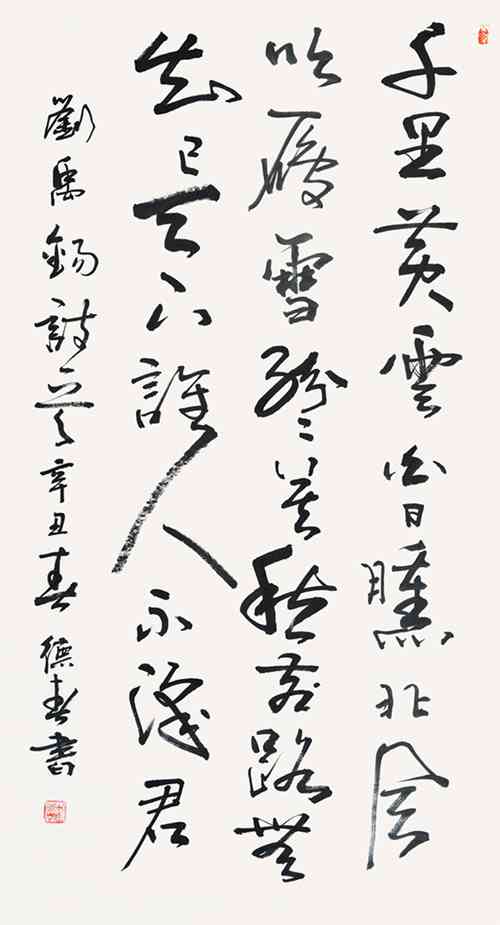 千里黄雲白日曛北風
吹雁雪紛〻莫愁前路無
知己天下誰人不識君
劉禹錫詩一首辛丑春德春書